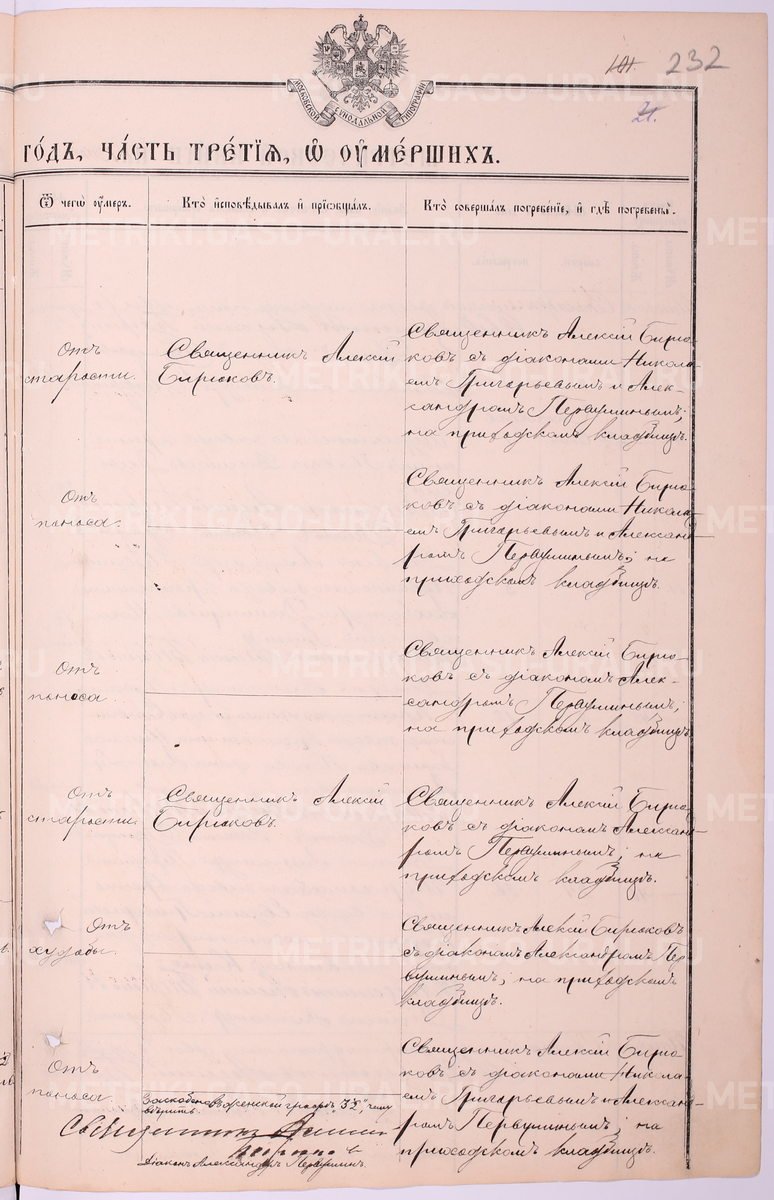 101. 232
21.
МОСКОВСКОЙ СѴНОДАЛЬНОЙ ТИПОГРАФІИ
ГО́ДЪ, ЧА́СТЬ ТРЕ́ТІЯ, Ѽ ОУ҆МЕ́РШИХЪ.
Ѿ чегѡ̀ оу҆́меръ.
Кто̀ и҆сповѣ́дывалъ и҆ прїѡбща́лъ.
Кто̀ соверша́лъ погребе́нїе, и҆ гдѣ̀ погребены̀.
Отъ
старости.
Священникъ Алексій
Бирюковъ.
Священникъ Алексій Бирю-
ковъ съ діаконами Никола-
емъ Григорьевымъ и Алек-
сандромъ Первушинымъ;
на приходскомъ кладбищѣ.
Отъ
поноса.
Священникъ Алексій Бирю-
ковъ съ діаконами Никола-
емъ Григорьевымъ и Александ-
ромъ Первушинымъ; на
приходскомъ кладбищѣ.
Отъ
поноса.
Священникъ Алексій Бирю-
ковъ съ діакономъ Алек-
сандромъ Первушинымъ;
на приходскомъ кладбищѣ.
Отъ
старости.
Священникъ Алексій
Бирюковъ.
Священникъ Алексій Бирю-
ковъ съ діакономъ Александ-
ромъ Первушинымъ; на
приходскомъ кладбищѣ.
Отъ
худобы.
Священникъ Алексій Бирюковъ
съ діакономъ Александромъ Пер-
вушинымъ; на приходскомъ
кладбищѣ.
Отъ
поноса.
Священникъ Алексій Бирю-
ковъ съ діаконами Никола-
емъ Григорьевымъ и Александ-
ромъ Первушинымъ; на
приходскомъ кладбищѣ.
въ женской графѣ „32“, чему
вѣрить.
Священникъ Алексій
Бирюковъ
Діаконъ Александръ Первушинъ.
METRIKI.GASO-URAL.RU